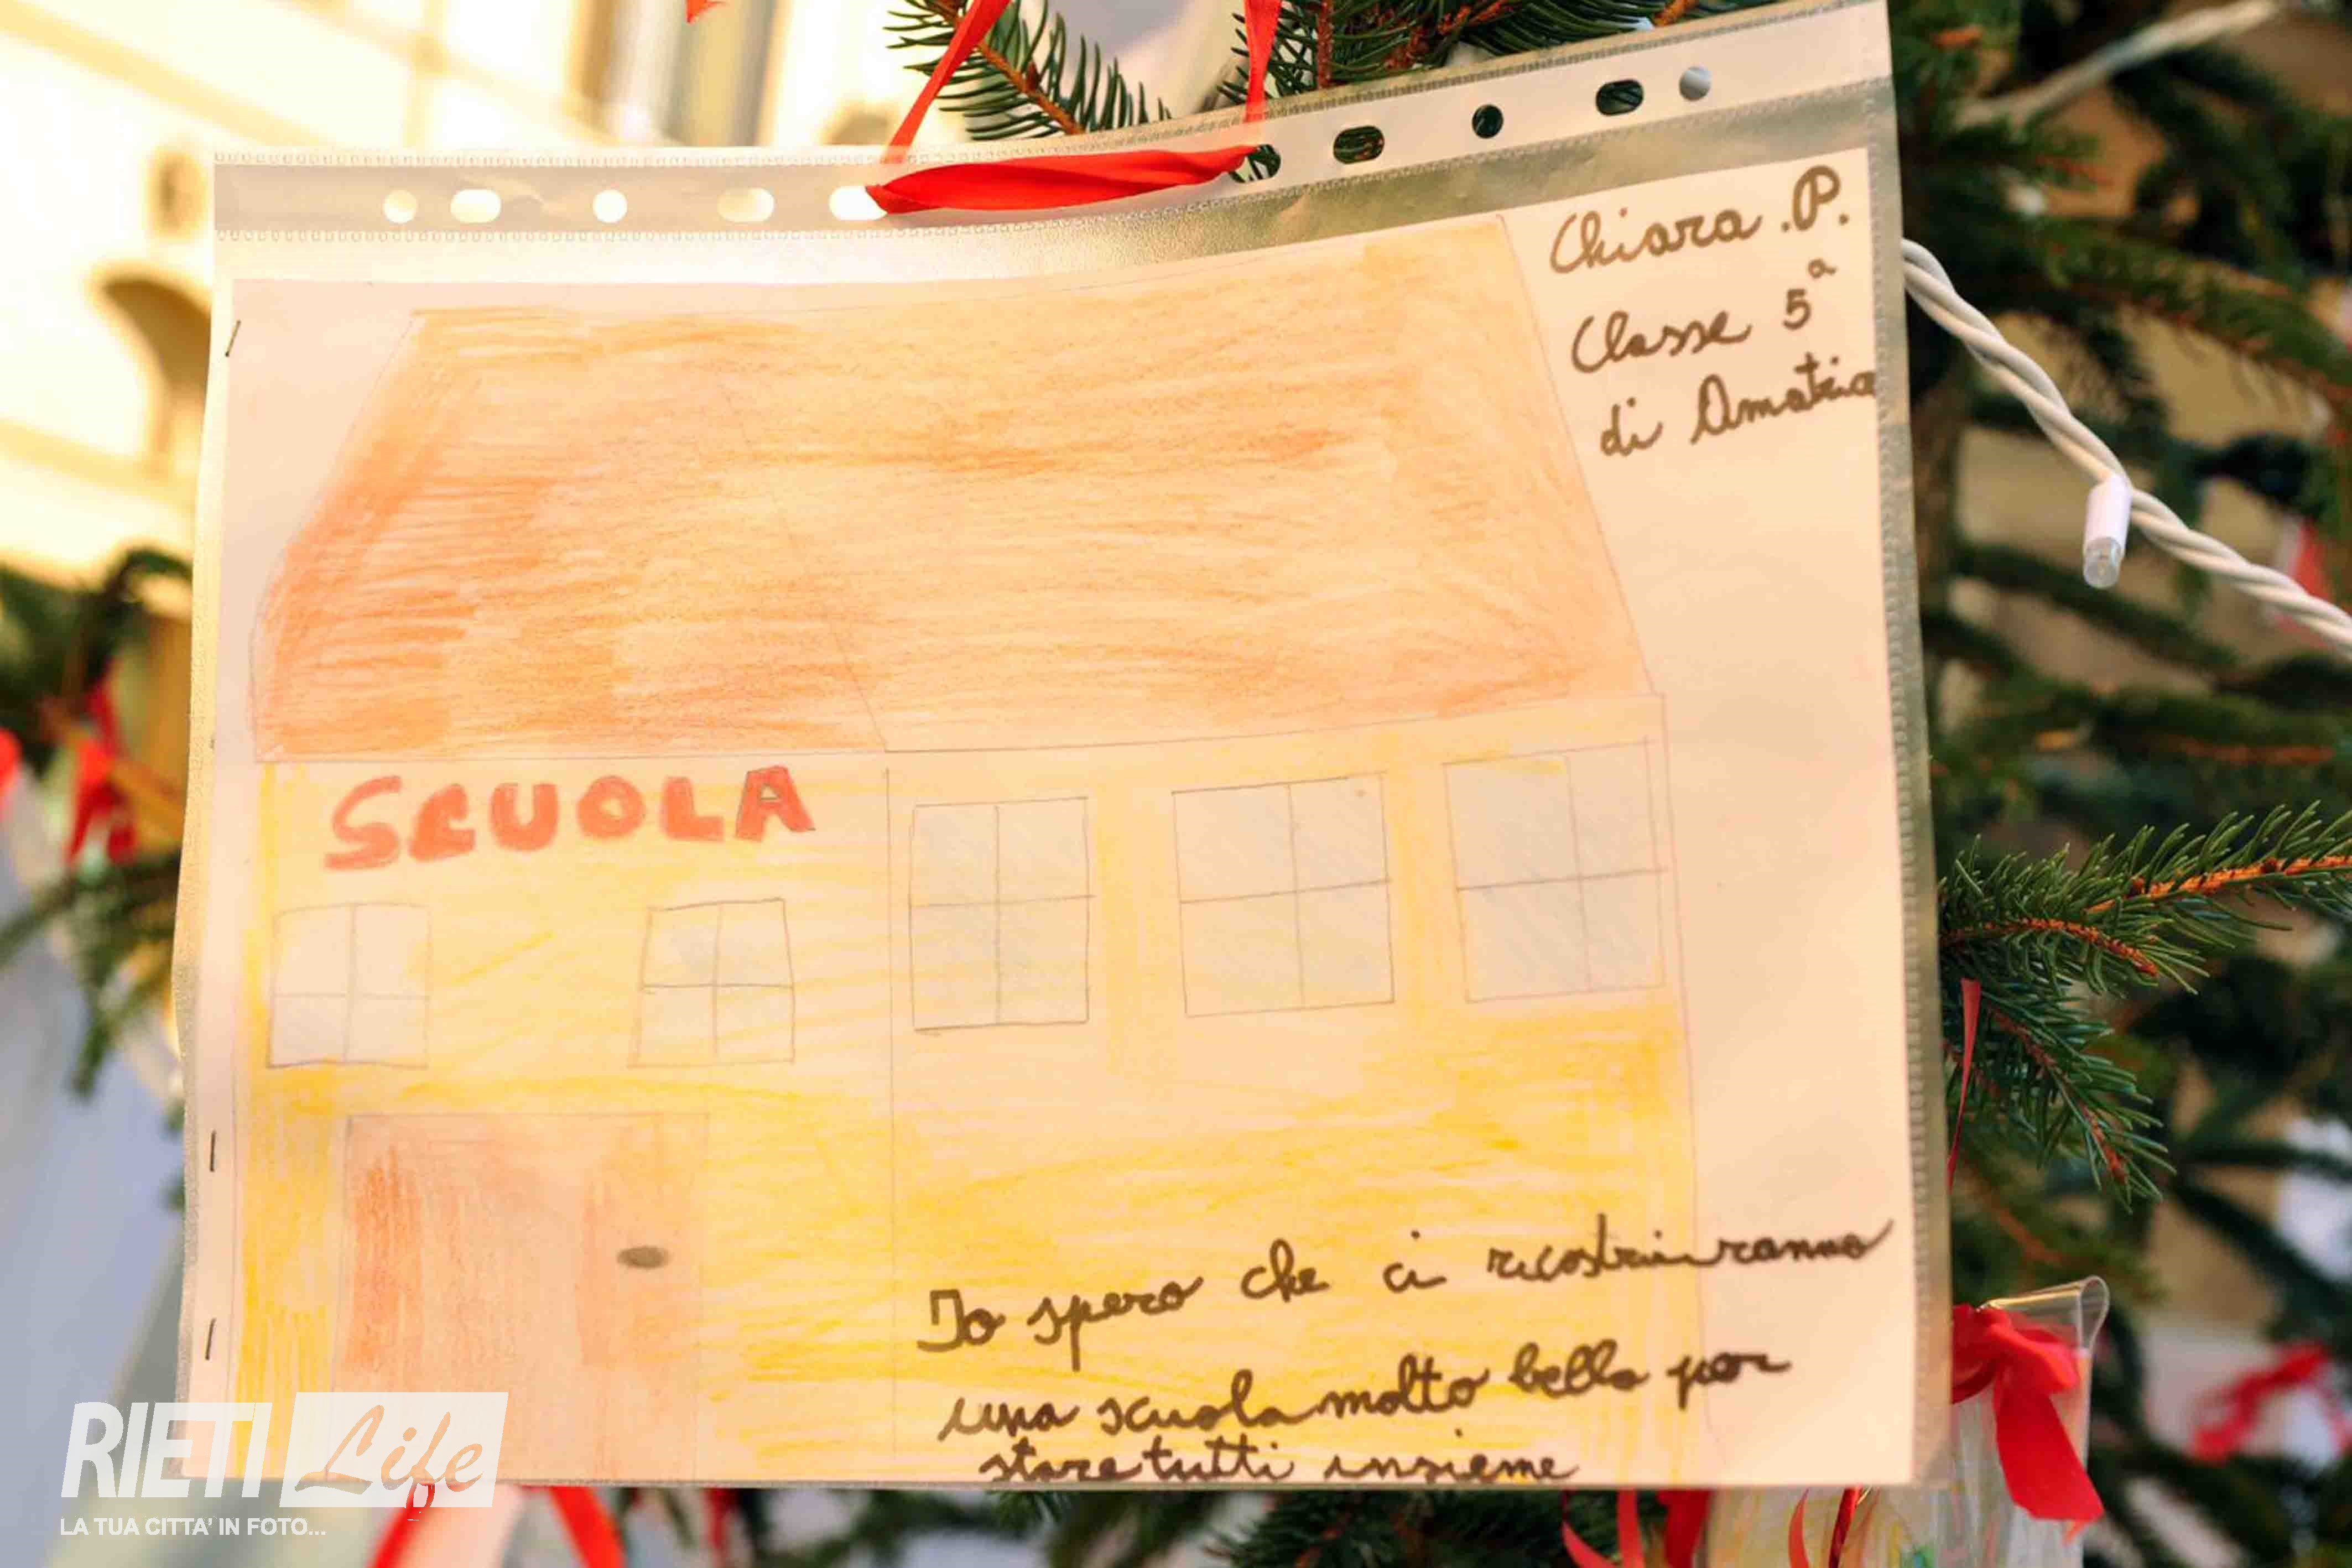 Chiara .P.
Classe 5ª
di Amatrice
SCUOLA
Io spero che ci ricostruiranno
una scuola molto bella per
stare tutti insieme
RIETI Life
LA TUA CITTA' IN FOTO...